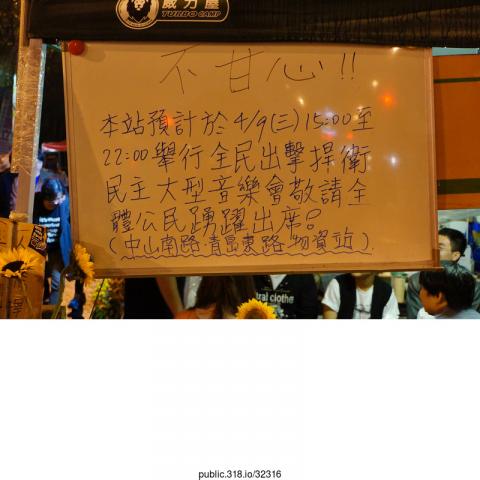 威力屋
TURBO CAMP
不甘心!!
本站預計於4/9(三)15:00至
22:00舉行全民出擊捍衛
民主大型音樂會敬請全
體公民踴躍出席。
(中山南路·青島東路·物資站).
ral clothe
public.318.io/32316